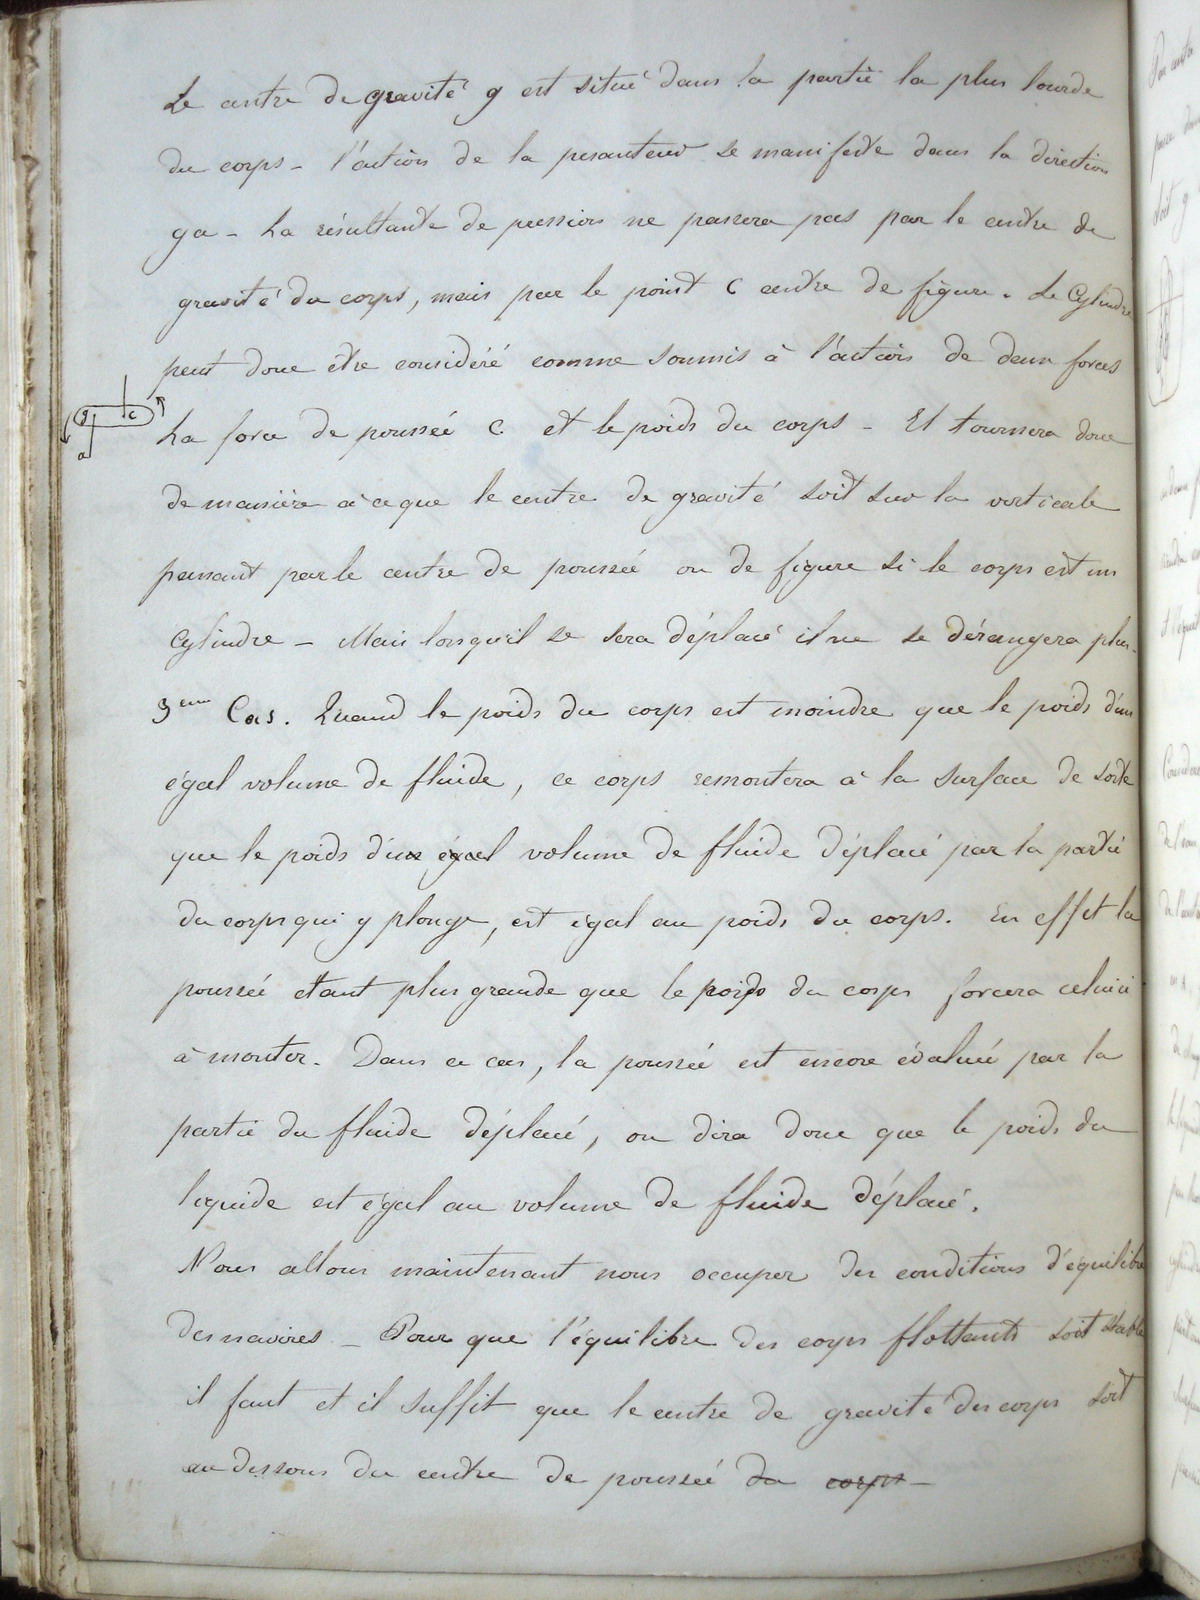 Le centre de gravité g est situé dans la partie la plus lourde
du corps – l'action de la pesanteur se manifeste dans la direction
ga – La résultante de pression ne passera pas par le centre de
gravité du corps, mais par le point C centre de figure. Le Cylindre
peut donc être considéré comme soumis à l'action de deux forces
g c
La force de poussée C et le poids du corps – Et tournera donc
a
de manière à ce que le centre de gravité soit sur la verticale
passant par le centre de poussée ou de figure si le corps est un
Cylindre – Mais lorsqu'il se sera déplacé il ne se dérangera plus –
3eme Cas. Quand le poids du corps est moindre que le poids d'un
égal volume de fluide, ce corps remontera à la surface de sorte
que le poids d'un égal volume de fluide déplacé par la partie
du corps qui y plonge, est égal au poids du corps. En effet la
poussée étant plus grande que le poids du corps forcera celui ci
à monter. Dans ce cas, la poussée est encore évaluée par la
partie du fluide déplacé, on dira donc que le poids du
liquide est égal au volume de fluide déplacé.
Nous allons maintenant nous occuper des conditions d'équilibre
des navires – Pour que l'équilibre des corps flottants soit stable
il faut et il suffit que le centre de gravité des corps soit
au dessous du centre de poussée du corps –